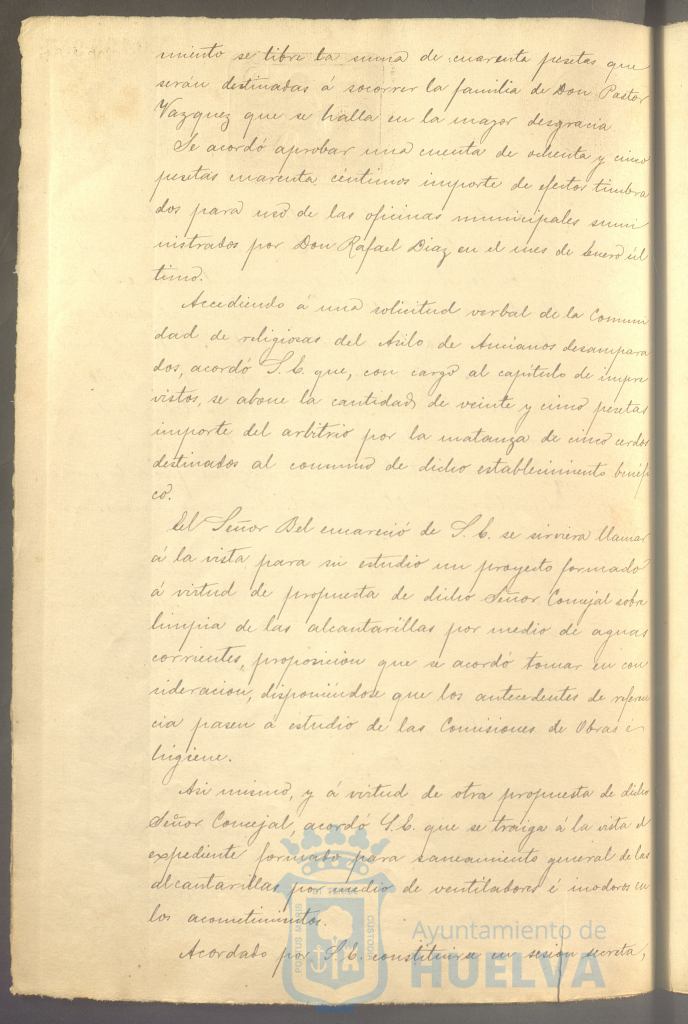 miento se libre la suma de cuarenta pesetas que
serán destinadas á socorrer la familia de Don Pastor
Vazquez que se halla en la mayor desgracia
Se acordó aprobar una cuenta de ochenta y cinco
pesetas cuarenta céntimos importe de efectos timbra
dos para uso de las oficinas municipales sumi
nistrados por Don Rafael Diaz en el mes de Enero úl
timo.
Accediendo á una solicitud verbal de la Comuni
dad de religiosas del Asilo de Ancianos desampara
dos, acordó S.E. que, con cargo al capítulo de impre
vistos, se abone la cantidad de veinte y cinco pesetas
importe del arbitrio por la matanza de cinco cerdos
destinados al consumo de dicho establecimiento benéfi
co.
El Señor Bel encareció de S.E. se sirviera llamar
á la vista para su estudio un proyecto formado
á virtud de propuesta de dicho Señor Concejal sobre
limpia de las alcantarillas por medio de aguas
corrientes, proposicion que se acordó tomar en con
sideracion, disponiéndose que los antecedentes de referen
cia pasen á estudio de las Comisiones de Obras é
higiene.
Asi mismo, y á virtud de otra propuesta de dicho
Señor Concejal, acordó S.E. que se traiga á la vista el
expediente formado para saneamiento general de las
alcantarillas por medio de ventiladores é inodoros en
los acometimientos.
Acordado por S.E. constituirse en sesion secreta,
PORTUS MARIS
CUSTODIA
Ayuntamiento de
HUELVA